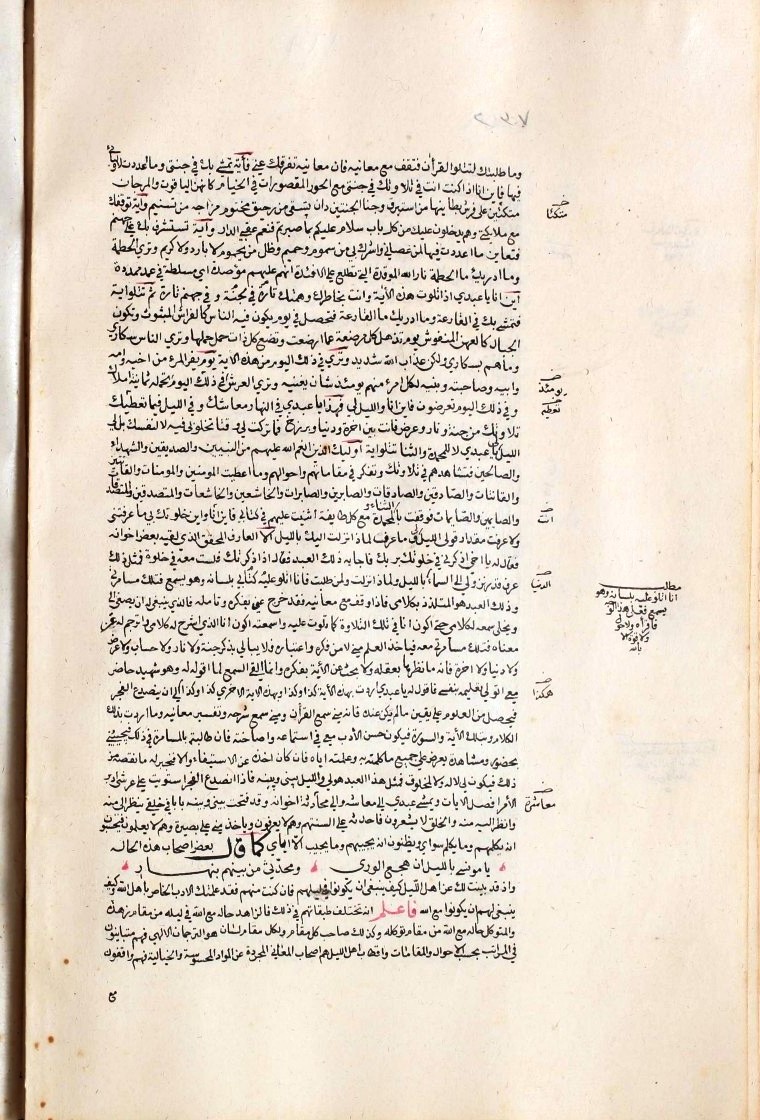 وما طلبتك لتتلوا القرآن فتقف مع معانيه فان معانيه تفرقك عني فآية تمشي بك في جنتي وما اعددت لاوليائي
فيها فاين انا اذا كنت انت في تلاوتك في جنتي مع الحور المقصورات في الخيام كانهن الياقوت والمرجان
متكئين على فرش بطاينها من استبرق وجنا الجنتين دان تسقى من رحيق مختوم مزاجه من تسنيم واية توقفك
مع ملائكتي وهم يدخلون عليك من كل باب سلام عليكم بما صبرتم فنعم عقبى الدار واية تستشرف بك على جهنم
فتعاين ما اعددت فيها لمن عصاني واشرك بي من سموم وحميم وظل من يحموم لا بارد ولا كريم وترى الحطمة
وما ادريك ما الحطمة نار الله الموقدة التي تطلع على الافئدة انها عليهم مؤصدة اي مسلطة في عمد ممددة
اين انا يا عبدي اذا تلوت هذه الآية وانت بخاطرك وهمتك تارة في الجنة وفي جهنم تارة ثم تتلوا آية
فتمشي بك في القارعة وما ادريك ما القارعة فتحصل في يوم يكون فيه الناس كالفراش المبثوث وتكون
الجبال كالعهن المنفوش يوم تذهل كل مرضعة عما ارضعت وتضع كل ذات حمل حملها وترى الناس سكارى
وما هم بسكارى ولكن عذاب الله شديد وترى في ذلك اليوم من هذه الاية يوم يفر المرء من اخيه وامه
وابيه وصاحبته وبنيه لكل امرء منهم يومئذ شان يغنيه وترى العرش في ذلك اليوم تحمله ثمانية املاك
وفي ذلك اليوم تعرضون فاين انا والليل لي فهذا يا عبدي في النهار معاشك وفي الليل فيما تعطيك
تلاوتك من جنة ونار وعرض فانت بين اخرة ودنيا وبرزخ فما تركت لي وقتا تخلو بي فيه لا لنفسك بل لي
الليل لي يا عبدي لا للمحمدة والثنا تتلوا آية اوليك الذين انعم الله عليهم من النبيين والصديقين والشهداء
والصالحين فتشاهدهم في تلاوتك وتفكر في مقاماتهم واحوالهم وما اعطيت المومنين والمومنات والقانتين
والقانتات والصادقين والصادقات والصابرين والصابرات والخاشعين والخاشعات والمتصدقين والمتصدقات
والصايمين والصايمات فوقفت بالمحمدة مع كل طايفة اثنيت عليهم في كتابي فاين انا واين خلوتك بي ما عرفني
ولا عرف مقدار قولي الليل لي وما عرف لماذا نزلت اليك بالليل الا العارف المحقق الذي لقيه بعض اخوانه
فقال له يا اخي اذكرني في خلوتك بربك فاجابه ذلك العبد فقال اذا ذكرتك فلست معه في خلوة فمثل ذلك
عرف قدر نزولي الى السماء بالليل ولماذا نزلت ولمن طلبت فانا اتلو عليه كتابي بلسانه وهو يسمع فتلك مسامرتي
وذلك العبد هو الملتذذ بكلامي فاذا وقف مع معانيه فقد خرج عني بفكره وتامله فالذي ينبغي له ان يصغي الي
ويخلي سمعه لكلامي حتى اكون انا في تلك التلاوة كما تلوت عليه واسمعته اكون انا الذي اشرح له كلامي واترجم له عن
معناه فتلك مسامرتي معه فياخذ العلم مني لا من فكره واعتباره فلا يبالي بذكر جنة ولا نار ولا حساب ولا عرض
ولا دنيا ولا اخرة فانه ما نظرها بعقله ولا بحث عن الآية بفكره وانما القى السمع لما اقوله له وهو شهيد حاضر
معي اتولى تعليمه بنفسي فاقول له يا عبدي اردت بهذه الآية كذا وكذا وبهذه الاية الاخرى كذا وكذا الى ان ينصدع الفجر
فيحصل من العلوم على يقين ما لم يكن عنده فانه مني سمع القرآن ومني سمع شرحه وتفسير معانيه وما اردت بذلك
الكلام وبتلك الآية والسورة فيكون حسن الادب معي في استماعه واصاخته فان طالبته بالمسامرة في ذلك فيجيبني
بحضور ومشاهدة يعرض علي جميع ما كلمته به وعلمته اياه فان كان اخذه على الاستيفاء والا فنجبر له ما نقصه من
ذلك فيكون لي لا له ولا لمخلوق فمثل هذا العبد هو لي والليل بيني وبينه فاذا انصدع الفجر استويت على عرشي ادبر
الامر افصل الايات ويمشي عبدي الى معاشه والى محادثة اخوانه وقد فتحت بيني وبينه بابا في خلقي ينظر الي منه
وانظر اليه منه والخلق لا يشعرون فاحدثه على السنتهم وهم لا يعرفون وياخذ مني على بصيرة وهم لا يعلمون فيحسبون
انه يكلمهم وما يكلم سواي ويظنون انه يجيبهم وما يجيب الا اياي كما قال بعض اصحاب هذه الحاله
يا مونسي بالليل ان هجع الورى ومحدثي من بينهم بنهار
واذ قد بينت لك عن اهل الليل كيف ينبغي ان يكونوا في ليلهم فان كنت منهم فقد علمتك الادب الخاص باهل الله وكيف
ينبغي لهم ان يكونوا مع الله فاعلم انه تختلف طبقاتهم في ذلك فالزاهد حاله مع الله في ليله من مقام زهده
والمتوكل حاله مع الله من مقام توكله وكذلك صاحب كل مقام ولكل مقام لسان هو الترجمان الالهي فهم متباينون
في المراتب بحسب الاحوال والمقامات واقطاب اهل الليل هم اصحاب المعاني المجردة عن المواد المحسوسة والخيالية فهم واقفون
مع
متكئا
يومئذ
تعطيه
انت
الدنيا
هكذا
معاشرة
مطالب
انا اتلو عليه بلسانه وهو
يسمع